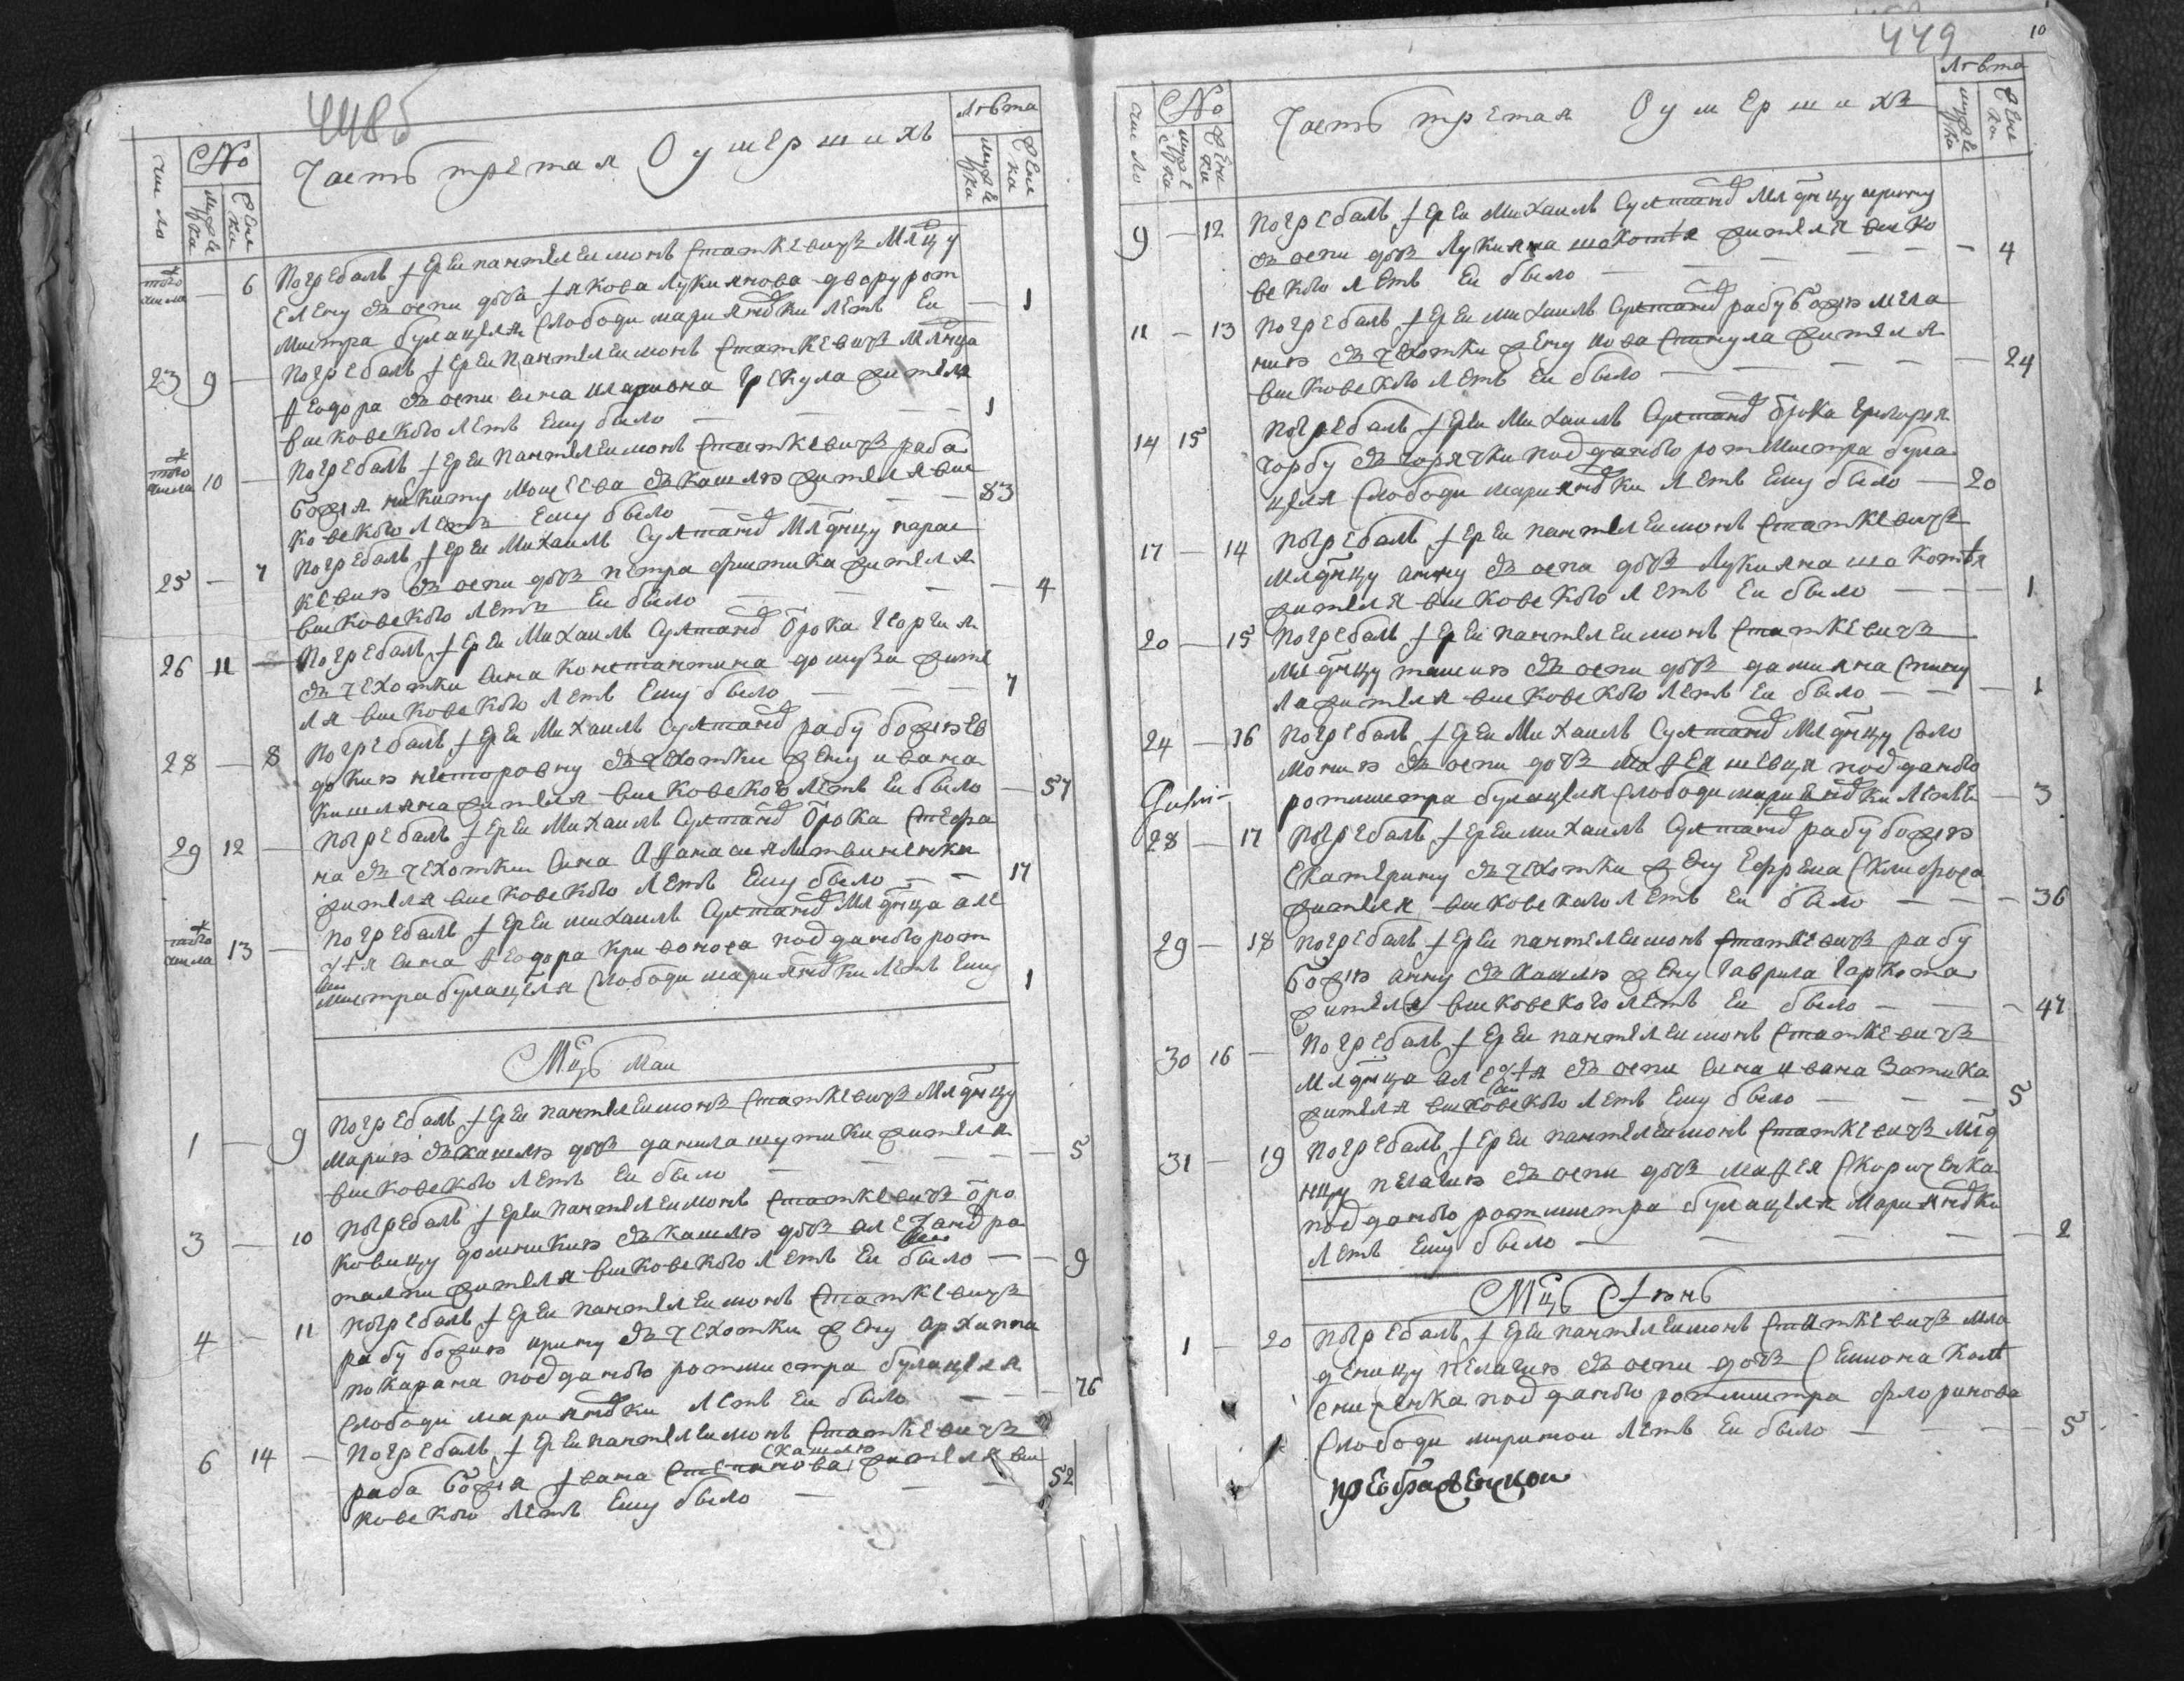 448б
Число № мужеска женска Часть третая О умершихъ Лѣта мужеска женска
того числа — 6 Погребалъ Іереи пантелеимонъ Статкевичъ Млцу
Елену дъ оспи дочь Іякова Лукиянова двору рот
мистра булацеля Слободи марияновки летъ Еи — 1
23 9 — Погребалъ Іереи пантелеимонъ Статкевичъ Млнца
Ѳеодора дъ оспи сина илариона грекула жителя
висковского летъ Ему било — 1
того числа 10 — Погребалъ Іереи пантелеимонъ Статкевичъ раба
божія никиту моисеева дъ кашлю жителя вис
ковского летъ Ему било — 83
25 — 7 Погребалъ Іереи Михаилъ Султанов Млднцу парас
кевию дъ оспи дочь петра фиштика жителя
висковского летъ Еи било — 4
26 11 — Погребалъ Іереи Михаилъ Султанов Отрока Георгия
дъ чехотки сина константина домузи жите
ля висковского летъ Ему било — 7
28 — 8 Погребалъ Іереи Михаилъ Султанов рабу божию Ев
докию несторовну дъ чехотки жену ивана
кишляна жителя висковского летъ Еи било — 57
29 12 — Погребалъ Іереи Михаилъ Султанов Отрока Стефа
на дъ чехотки сина Аѳанасия литвиненки
жителя висковского летъ Ему било — 17
того числа 13 — Погребалъ Іереи михаилъ Султанов Млднца але
ѯѣя сина Ѳеодора кривоноса подданого рот
мистра булацеля Слободи марияновки летъ Ему 1
Мцъ Маи
1 — 9 Погребалъ Іереи пантелеимонъ Статкевичъ Млднцу
марию дъ кашлю дочь данила шутики жителя
висковского летъ Еи било — 5
3 — 10 Погребалъ Іереи пантелеимонъ Статкевичъ Отро
ковицу домникию дъ кашлю дочь алеѯандра
талпи жителя висковского летъ Еи било — 9
4 — 11 Погребалъ Іереи пантелеимонъ Статкевичъ
рабу божию ирину дъ чехотки жену архиппа
покарана подданого ротмистра булацеля
Слободи марияновки летъ Еи било — 76
6 14 — Погребалъ Іереи пантелеимонъ Статкевичъ
раба божія Івана Степанова с кашлю жителя вис
ковского летъ Ему било — 52
449
10
Число № мужеска женска Часть третая О умершихъ Лѣта мужеска женска
9 — 12 Погребалъ Іереи Михаилъ Султанов Млднцу ирину
дъ оспи дочь Лукияна шокотѣя жителя виско
вского летъ Еи било — 4
11 — 13 Погребалъ Іереи михаилъ Султанов рабу божию мела
нию дъ чехотки жену иова Спинула жителя
висковского летъ Еи било — 24
14 15 Погребалъ Іереи Михаилъ Султанов Отрока григория
чорбу дъ горячки подданого ротмистра була
целя Слободи марияновки летъ Ему било — 20
17 — 14 Погребалъ Іереи пантелеимонъ Статкевичъ
Млднцу анну дъ оспа дочь Лукияна шокотѣя
жителя висковского летъ Еи било — 1
20 — 15 Погребалъ Іереи пантелеимонъ Статкевичъ
Млднцу танию дъ оспи дочь дамияна Спину
ла жителя висковского летъ Еи било — 1
24 — 16 Погребалъ Іереи Михаилъ Султанов Млднцу Соло
монию дъ оспи дочь маѳея шевця подданого
ротмистра булацеля Слободи марияновки летъ Еи — 3
28 — 17 Погребалъ Іереи михаилъ Султанов рабу божию
Екатерину дъ чехотки жену Ефрема Склифоса
жителя висковского летъ Еи било — 36
29 — 18 Погребалъ Іереи пантелеимонъ Статкевичъ рабу
божию анну дъ кашлю жену гаврила гаркота
жителя висковского летъ Еи било — 47
30 16 — Погребалъ Іереи пантелеимонъ Статкевичъ
Млднца алеѯѣя дъ оспи сина ивана затика
жителя висковского летъ Ему било — 5
31 — 19 Погребалъ Іереи пантелеимонъ Статкевичъ Млд
нцу пелагию дъ оспи дочь маѳея Скориченка
подданого ротмистра булацеля марияновки
летъ Ему било — 2
Мцъ Іюнь
1 — 20 Погребалъ Іереи пантелеимонъ Статкевичъ мла
деницу пелагию дъ оспи дочь Симиона колѣ
сниченка подданого ротмистра флоринова
Слободи миринои летъ Еи било — 5
преображенскои